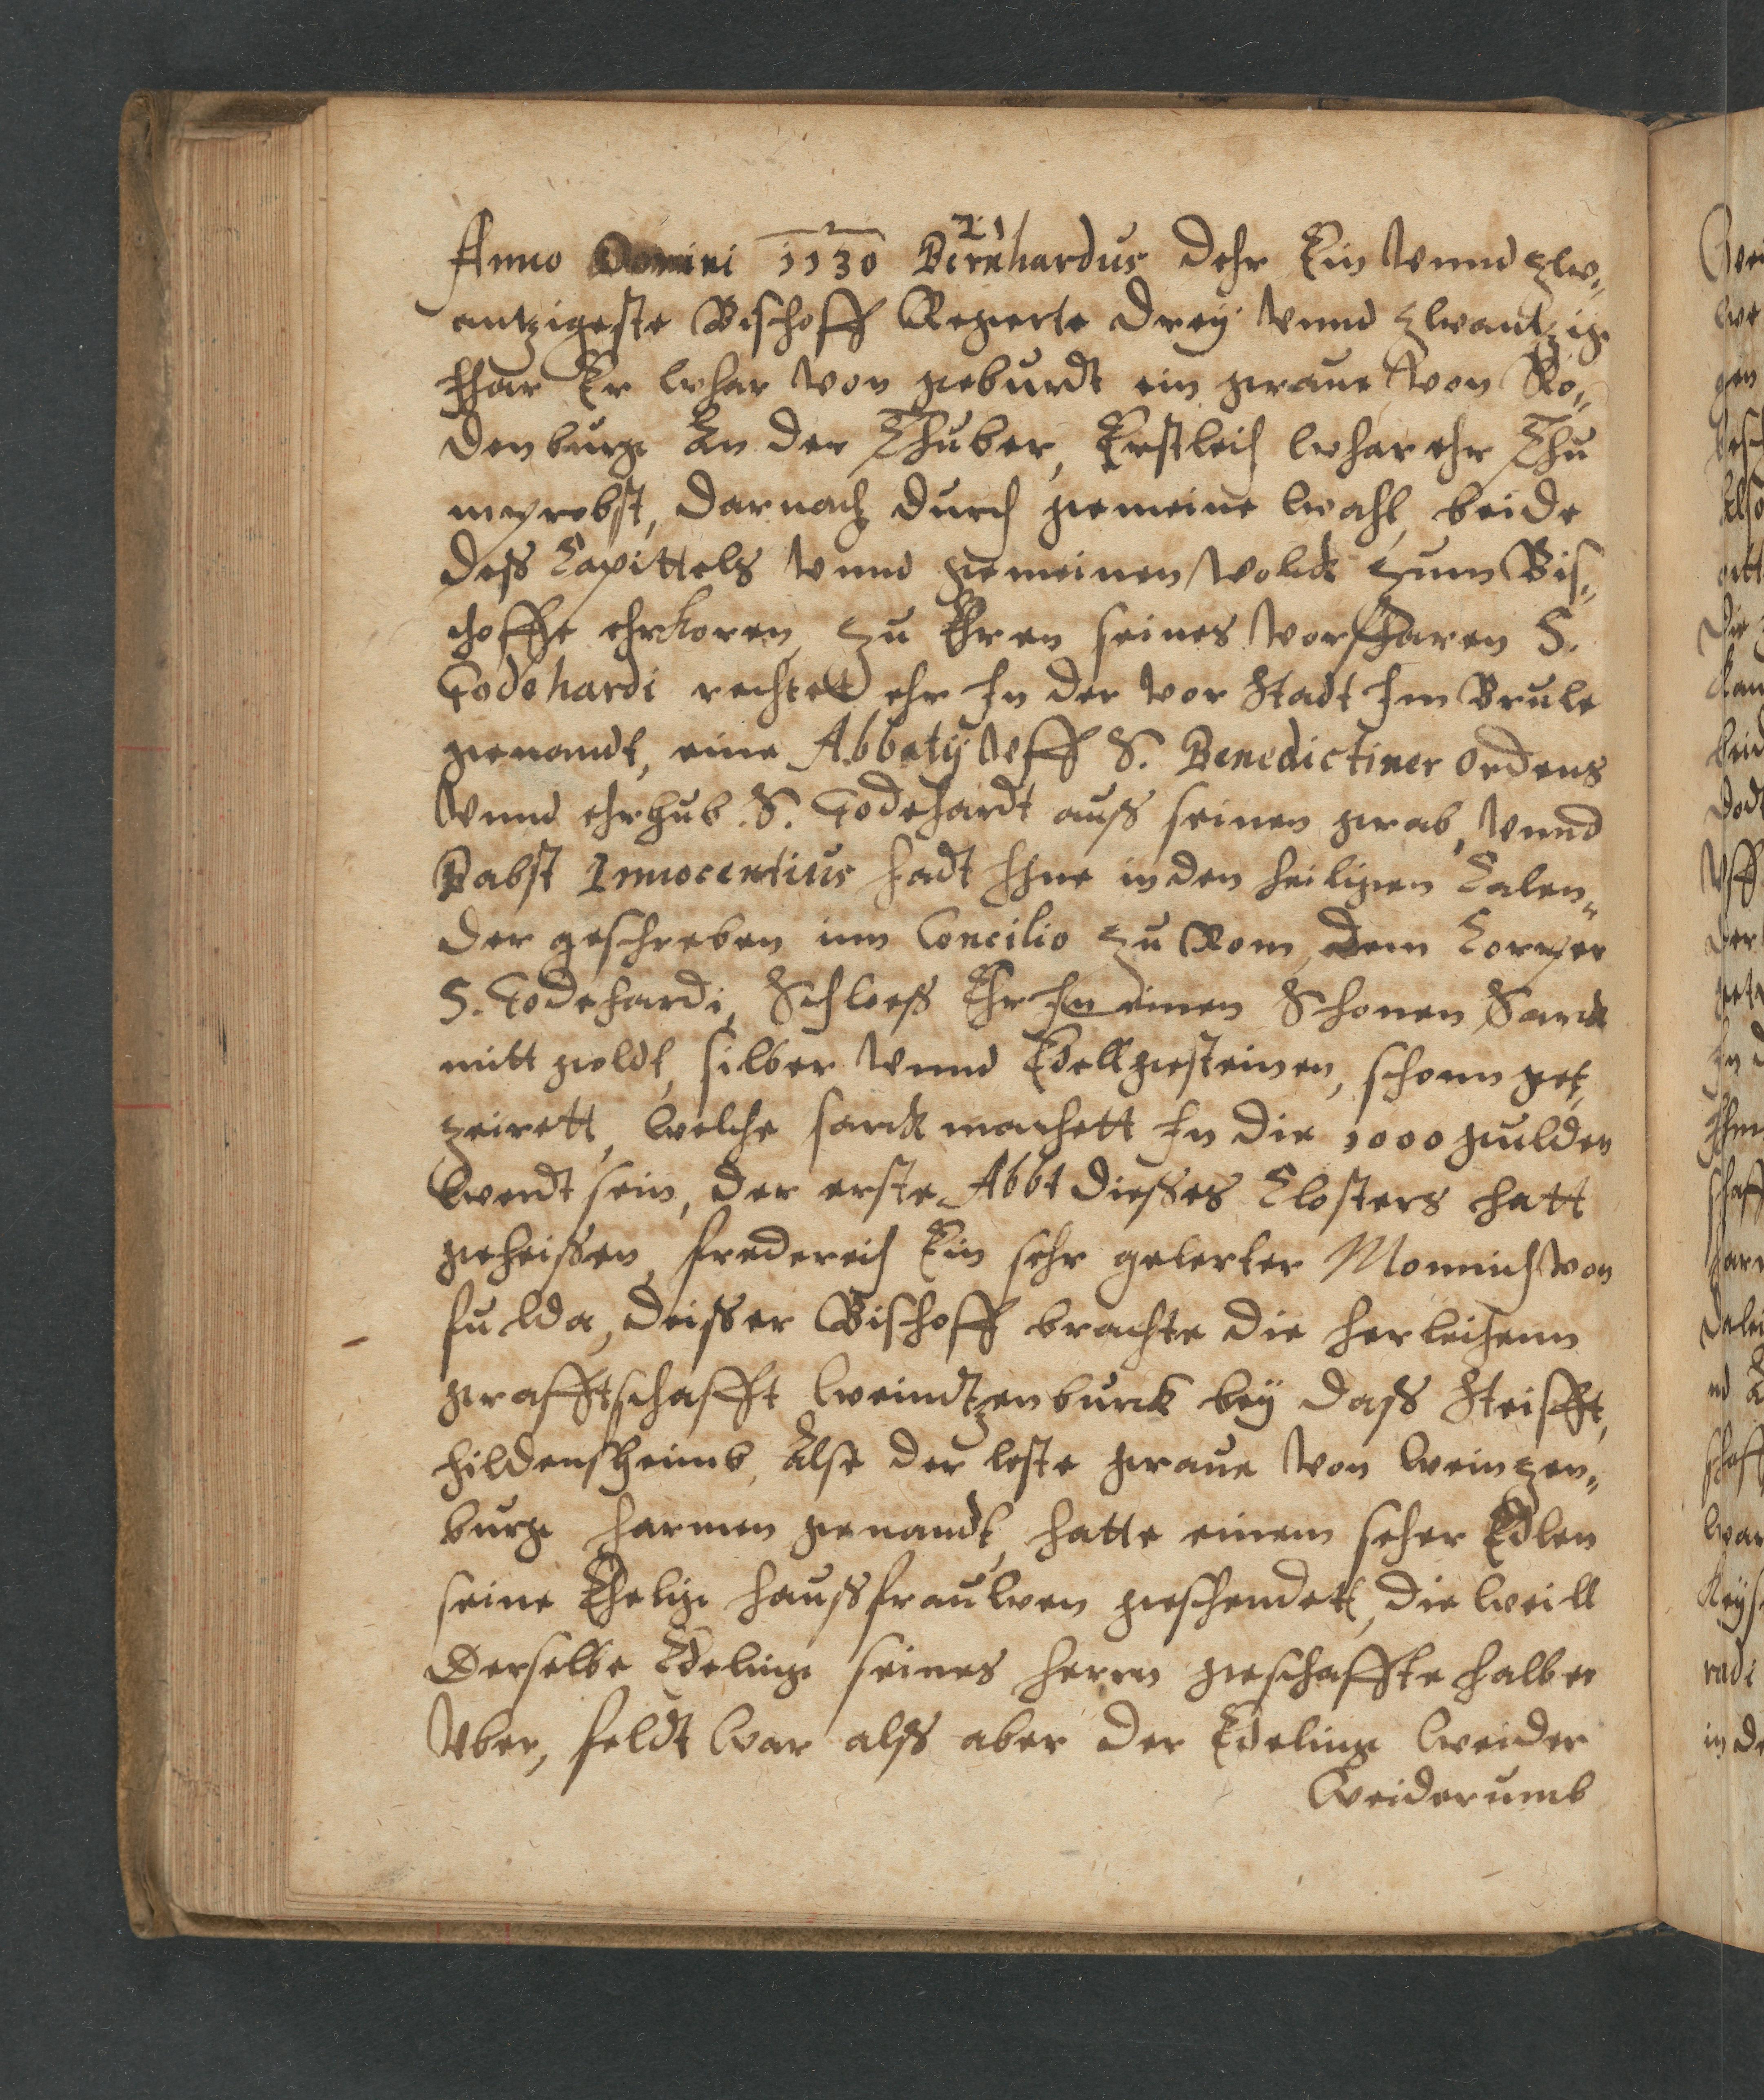 21
Anno Domini 1130 Bernhardus dehr Ein vnnd zw„
antzigeste Bischoff Regierte dreÿ vnnd zwantzig
Jhar Er whar von geburdt ein graue von Ro„
denburg An der Thuber, Erstleich whar ehr Thu
mprobst, darnach durch gemeine wahl, beide
dess Capittels vnnd gemeinen volck zum Bis„
choffe ehrkoren, zu Ehren seines vorfharen S.
Godehardi rechtet ehr In der vor Stadt Im Brule
genandt, eine Abbatÿ vff S. Benedictiner Ordens
vnnd ehrhub S. Godehardt auss seinen grab, vnnd
Pabst Innocentius hadt Ihne in den heiligen Calen„
der geschreben im Concilio zu Rom, dem Corper
S. Godehardi, Schloess Ehr In einen Schonen Sarck
mitt goldt, silber vnnd Edellgesteinen, schonn get
zeirett, welche sarck machett In die 1000 gulden
werdt sein, der erste Abbt diesses Closters hatt
geheissen, fredereich Ein sehr gelerter Monnich von
fulda, deisser Bischoff brachte die herleichenn
grafftschafft weindtzenburck beÿ dass Steifft,
hildensheimb, Alse der leste graue von weinzen„
burg harmen genandt, hatte einem seher Edlen
seine Ehelige haussfrauwen geschendett, die weill
Derselbe Edeling seines herrn geschaffte halber
vber, feldt war alss aber der Edeling weider
weiderumb